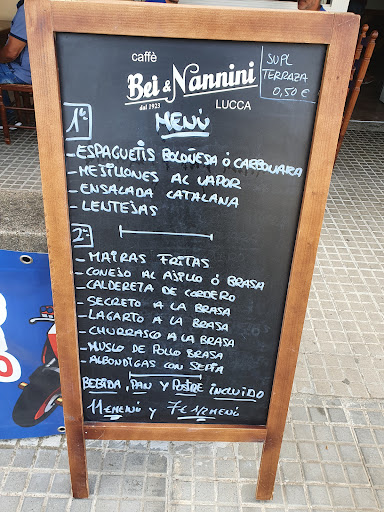 caffè
Bei & Nannini
dal 1923
LUCCA
SUPL
TERRAZA
0,50 €
MENÚ
1º
- ESPAGUETIS BOLOÑESA Ó CARBONARA
- MEJILLONES AL VAPOR
- ENSALADA CATALANA
- LENTEJAS
2º
- MAIRAS FRITAS
- CONEJO AL AJILLO Ó BRASA
- CALDERETA DE CORDERO
- SECRETO A LA BRASA
- LAGARTO A LA BRASA
- CHURRASCO A LA BRASA
- MUSLO DE POLLO BRASA
- ALBONDIGAS CON SEPIA
BEBIDA, PAN Y POSTRE INCLUIDO
11€ MENÚ Y 7€ 1/2 MENÚ